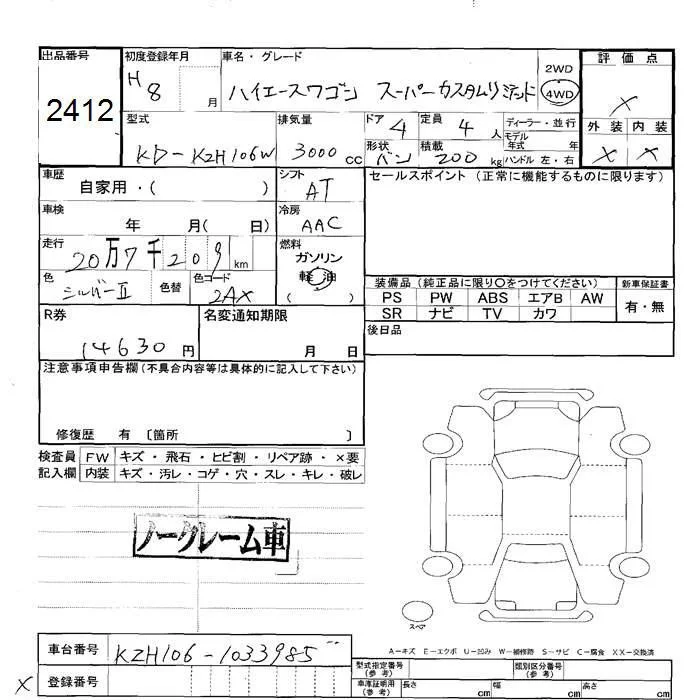 出品番号 初度登録年月 車名・グレード 2WD 評価点
2412 H8 月 ハイエースワゴン スーパーカスタムリミテッド 4WD X
型式 排気量 ドア 4 定員 4 人 ディーラー・並行 外装 内装
KD-KZH106W 3000 cc 形状 バン 積載 200 kg モデル年式 年 ハンドル 左・右 X X
車歴 シフト セールスポイント (正常に機能するものに限ります)
自家用・( ) AT
車検 年 月( 日) 冷房 AAC
走行 20万7千209 km 燃料 ガソリン
軽油
色 シルバーII 色替 色コード 2AX ( )
装備品 (純正品に限り○をつけてください) 新車保証書
PS PW ABS エアB AW 有・無
SR ナビ TV カワ
R券 名変通知期限 後日品
14630 円 月 日
注意事項申告欄 (不具合内容等は具体的に記入して下さい)
修復歴 有 〔箇所 〕
検査員 FW キズ・飛石・ヒビ割・リペア跡・×要
記入欄 内装 キズ・汚レ・コゲ・穴・スレ・キレ・破レ
ノークレーム車
スペア
A-キズ E-エクボ U-凹み W-補修跡 S-サビ C-腐食 XX-交換済
車台番号 KZH106-1033985
X 登録番号
型式指定番号 (参考) 類別区分番号 (参考)
車庫証明用 (参考) 長さ cm 幅 cm 高さ cm